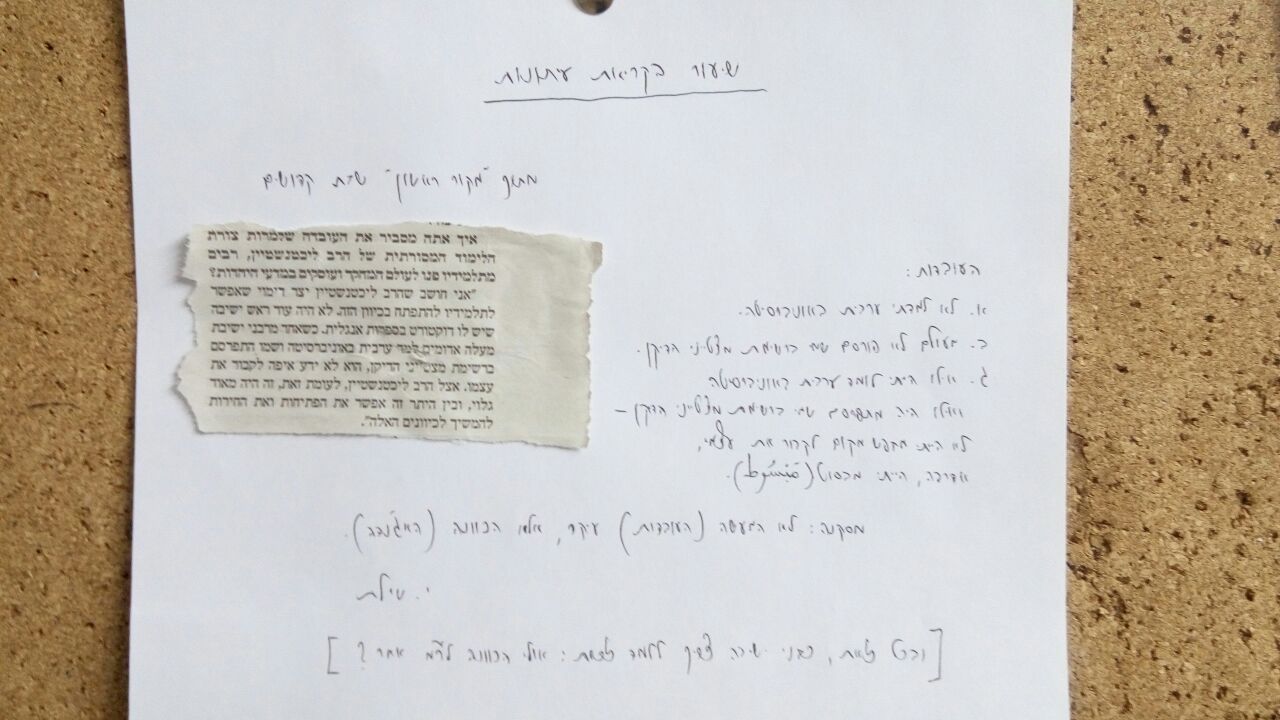 שיעור בקריאת עיתונות
מתוך "מקור ראשון" שבת קדושים
איך אתה מסביר את העובדה שלמרות צורת
הלימוד המסורתית של הרב ליכטנשטיין, רבים
מתלמידיו פנו לעולם המחקר ועוסקים במדעי היהדות?
"אני חושב שהרב ליכטנשטיין יצר דימוי שאפשר
לתלמידיו להתפתח בכיוון הזה. לא היה עוד ראש ישיבה
שיש לו דוקטורט בספרות אנגלית. כשאחד מרבני ישיבת
מעלה אדומים למד ערבית באוניברסיטה ושמו התפרסם
ברשימת מצטייני הדיקן, הוא לא ידע איפה לקבור את
עצמו. אצל הרב ליכטנשטיין, לעומת זאת, זה היה מאוד
גלוי, ובין היתר זה אפשר את הפתיחות ואת החירות
להמשיך לכיוונים האלה".
העובדות:
א. לא למדתי ערבית באוניברסיטה.
ב. מעולם לא פורסם שמי ברשימת מצטייני הדיקן.
ג. אילו הייתי לומד ערבית באוניברסיטה
ואילו היה מתפרסם שמי ברשימת מצטייני הדקן –
לא הייתי מחפש מקום לקבור את עצמי,
אדרבה, הייתי מבסוט (مَبْسُوط).
מסקנה: לא המעשה (העובדות) עיקר, אלא הכוונה (האג'נדה).
י. שילת
[ ובכל זאת, כבני ישיבה צריך ללמד זכות: אולי הכוונה לר"מ אחר? ]